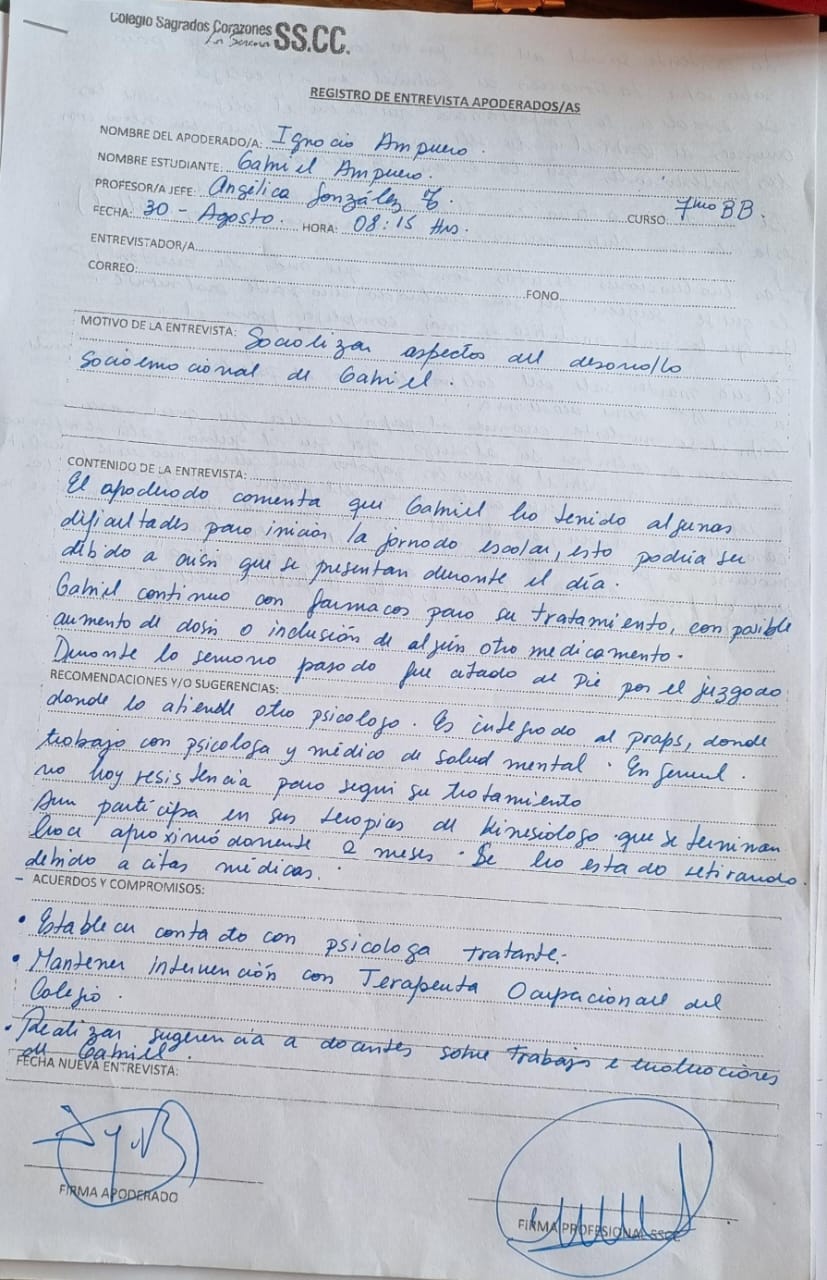 Colegio Sagrados Corazones
La Serena SS.CC.
REGISTRO DE ENTREVISTA APODERADOS/AS
NOMBRE DEL APODERADO/A: Ignacio Ampuero.
NOMBRE ESTUDIANTE: Gabriel Ampuero.
PROFESOR/A JEFE: Angélica González CURSO 7mo BB.
FECHA: 30 - Agosto. HORA: 08:15 Hrs.
ENTREVISTADOR/A
CORREO: FONO
MOTIVO DE LA ENTREVISTA: Socializar aspectos del desarrollo
Socioemocional de Gabriel.
CONTENIDO DE LA ENTREVISTA:
El apoderado comenta que Gabriel ha tenido algunas
dificultades para iniciar la jornada escolar, esto podría ser
debido a que se presentan durante el día.
Gabriel continua con farmacos para su tratamiento, con posible
aumento de dosis o inclusión de algún otro medicamento.
Durante la semana pasada fue citado al Pie por el juzgado
RECOMENDACIONES Y/O SUGERENCIAS:
donde lo atiende otro psicologo. Es integrado al praps, donde
trabaja con psicologa y médico de salud mental. En general.
no hay resistencia para seguir su tratamiento
Aun participa en sus terapias de kinesiologo que se terminan
en aproximadamente 2 meses. Se ha estado retirando
debido a citas médicas.
- ACUERDOS Y COMPROMISOS:
• Establecer contacto con psicologa tratante.-
• Mantener intervención con Terapeuta Ocupacional del
Colegio.
• Realizar sugerencia a docentes sobre trabajos e evaluaciones
de Gabriel.
FECHA NUEVA ENTREVISTA:
FIRMA APODERADO
FIRMA PROFESIONAL SSCC